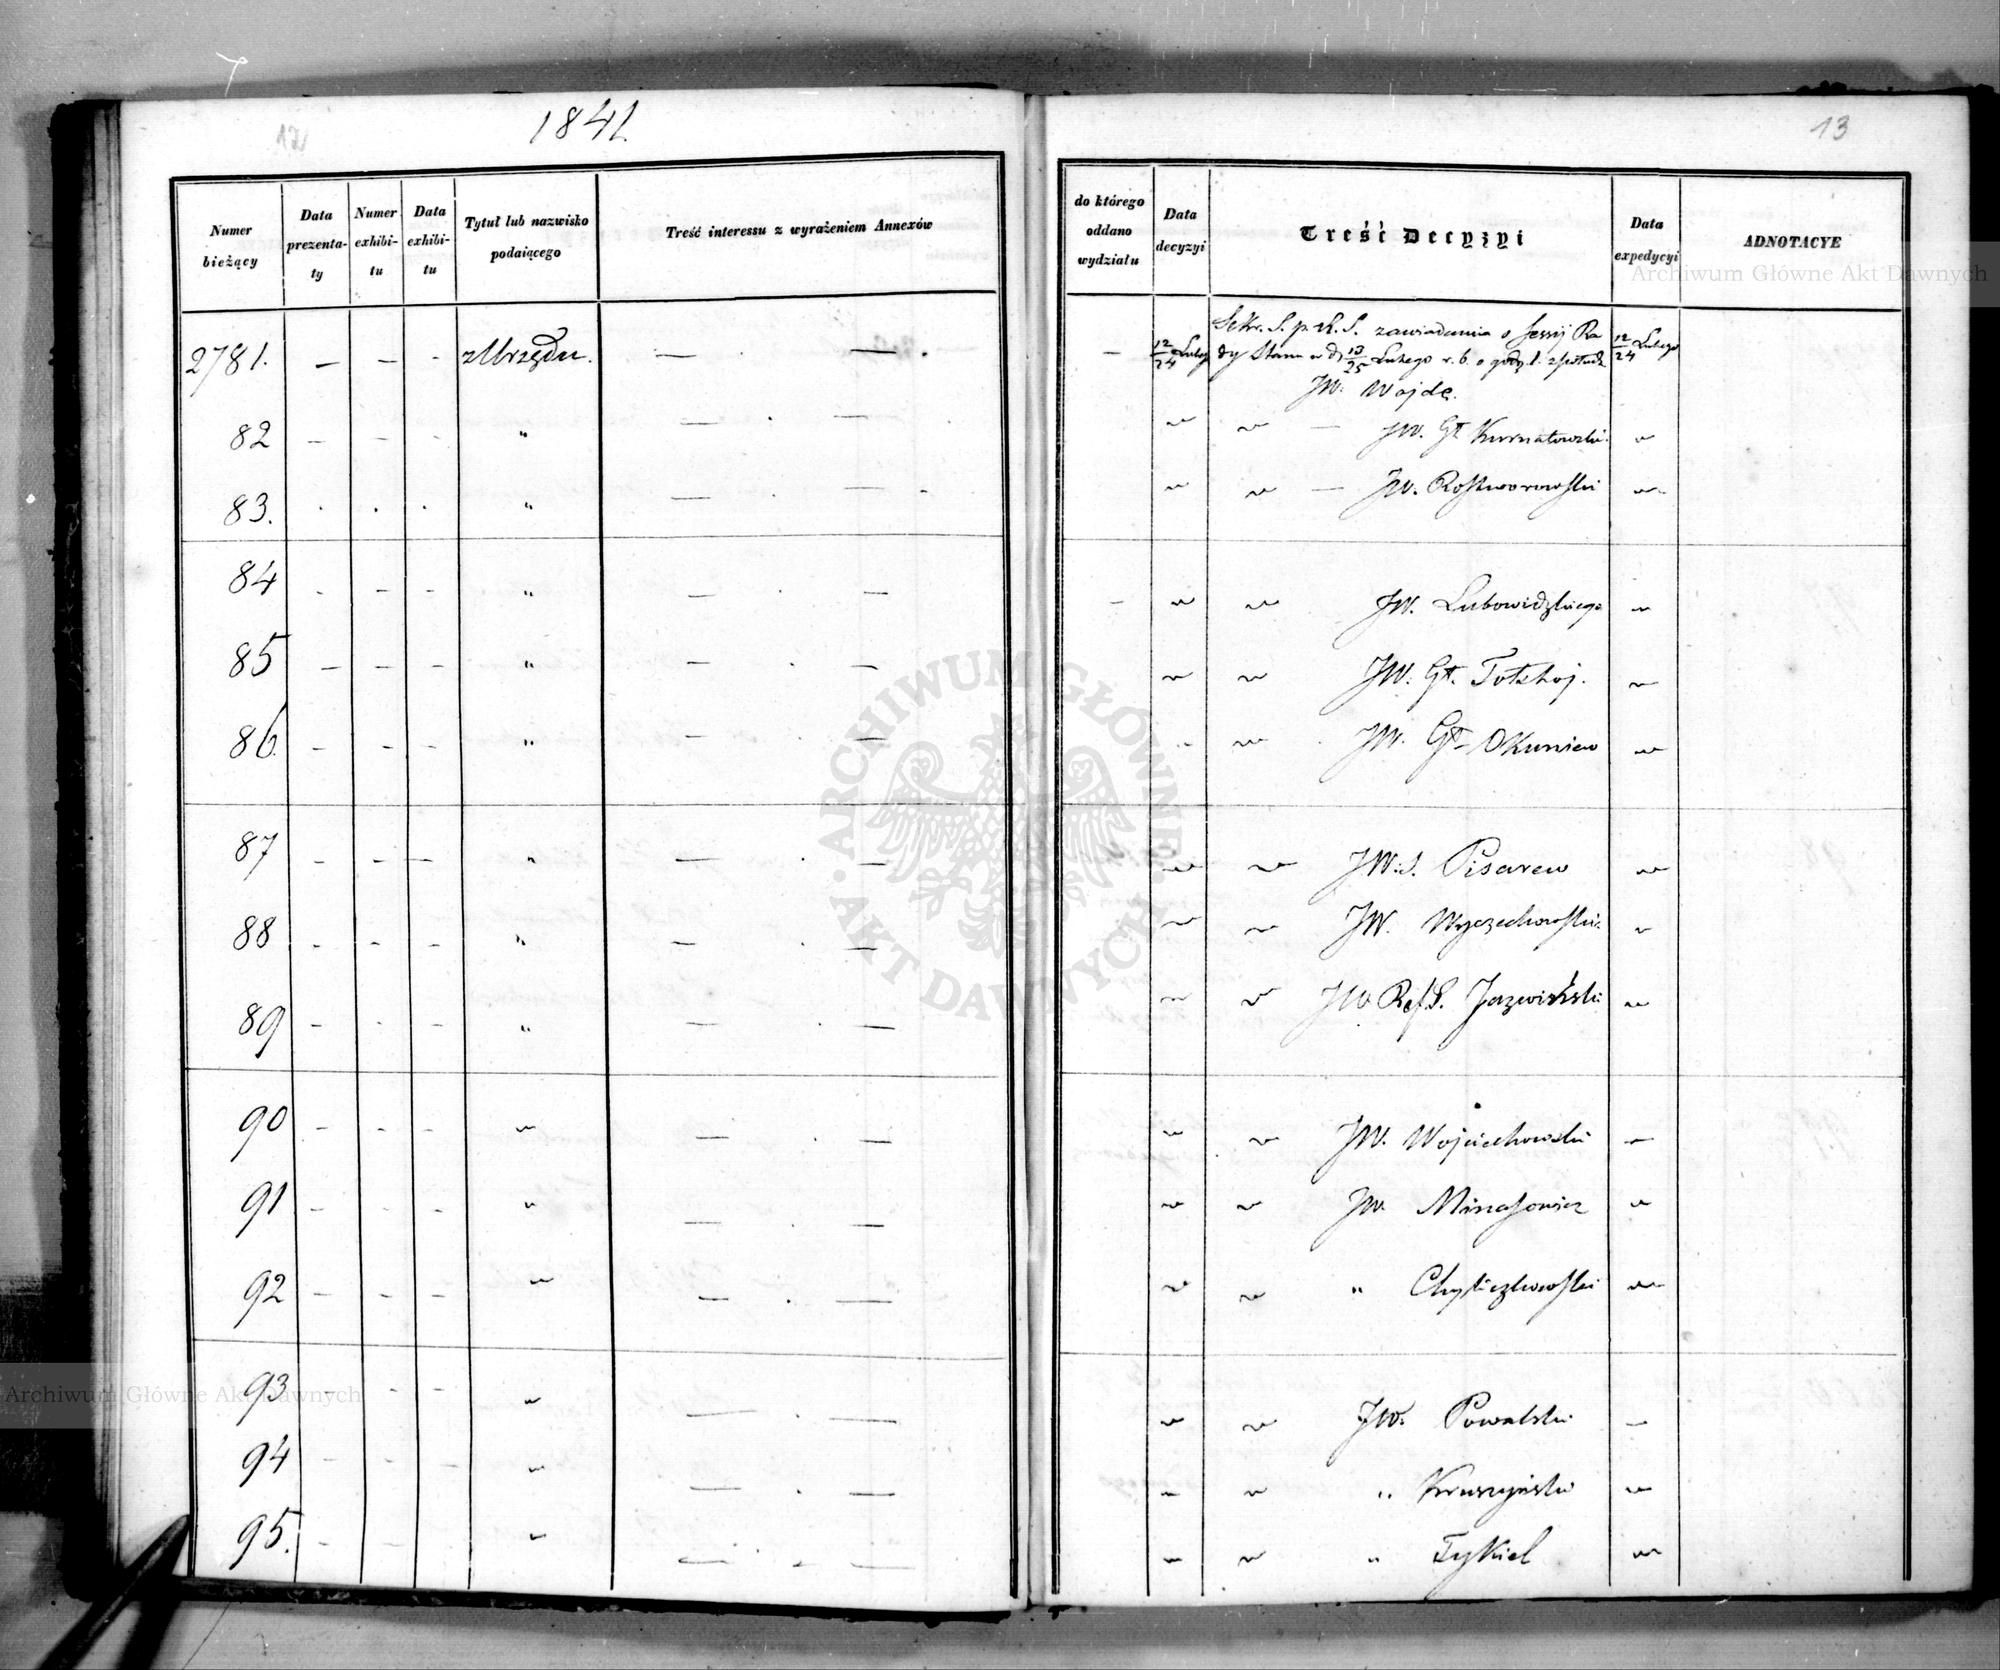 1841.
12
13
Numer bieżący
Data prezenta-ty
Numer exhibi-tu
Data exhibi-tu
Tytuł lub nazwisko podaiącego
Treść interessu z wyrażeniem Annexów
do którego oddano wydziału
Data decyzyi
Treść Decyzyi
Data expedycyi
ADNOTACYE
2781. — — - z Urzędu. — — . — 12/24 Lutego Sekr. S. p. R. S. zawiadamia o Sessij Ra 12/24 Lutego
dy Stanu w d. 13/25 Lutego r. b. o godz. 1. z połud
JW. Wojdę.
82 — - - " — . — " " — JW. Gł Kurnatowski. "
83. . . . " — . — " " — JW. Rostworowski "
84 - - - " — . — - " " JW. Lubowidzkiego "
85 — — - " — . — " " JW. Gł. Tołstoj. "
86. - - - " — . — " " JW. Gł. Okuniew "
87 - - — " — . — " " JW. S. Pisarew "
88 - - - " — . — " " JW. Wyczechowski. "
89 - . - " — . — " " JW Ref. S. Jazwiński "
90 - - - " — . — " " JW. Wojciechowski "
91 - - - " — . — " " JW Minasowicz "
92 - - - " — . — " " " Chyliczkowski "
93 - - " — . — " " JW. Powalski "
94 - - - " — . — " " " Kruszyński "
95. - - " — . — " " " Tykiel "
Archiwum Główne Akt Dawnych
ARCHIWUM GŁÓWNE · AKT DAWNYCH ·
Archiwum Główne Akt Dawnych